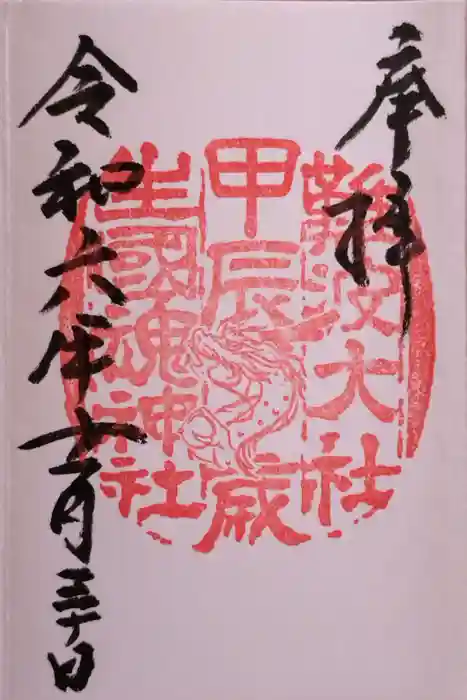 奉拝
難波大社
甲辰歳
生國魂神社
令和六年十一月三十日